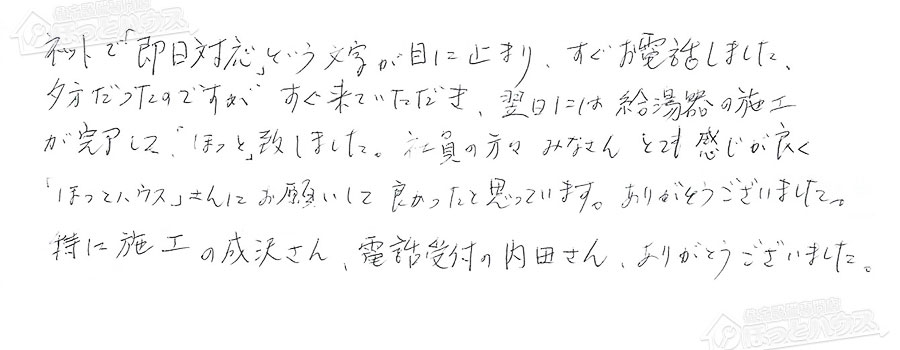 住宅設備専門店
ほっとハウス
ネットで「即日対応」という文字が目に止まり、すぐお電話しました、
夕方だったのですが すぐ来ていただき、翌日には給湯器の施工
が完了して「ほっと」致しました。社員の方々みなさんとても感じが良く
「ほっとハウス」さんにお願いして良かったと思っています。ありがとうございました。
特に施工の成沢さん、電話受付の内田さん、ありがとうございました。
住宅設備専門店
ほっとハウス